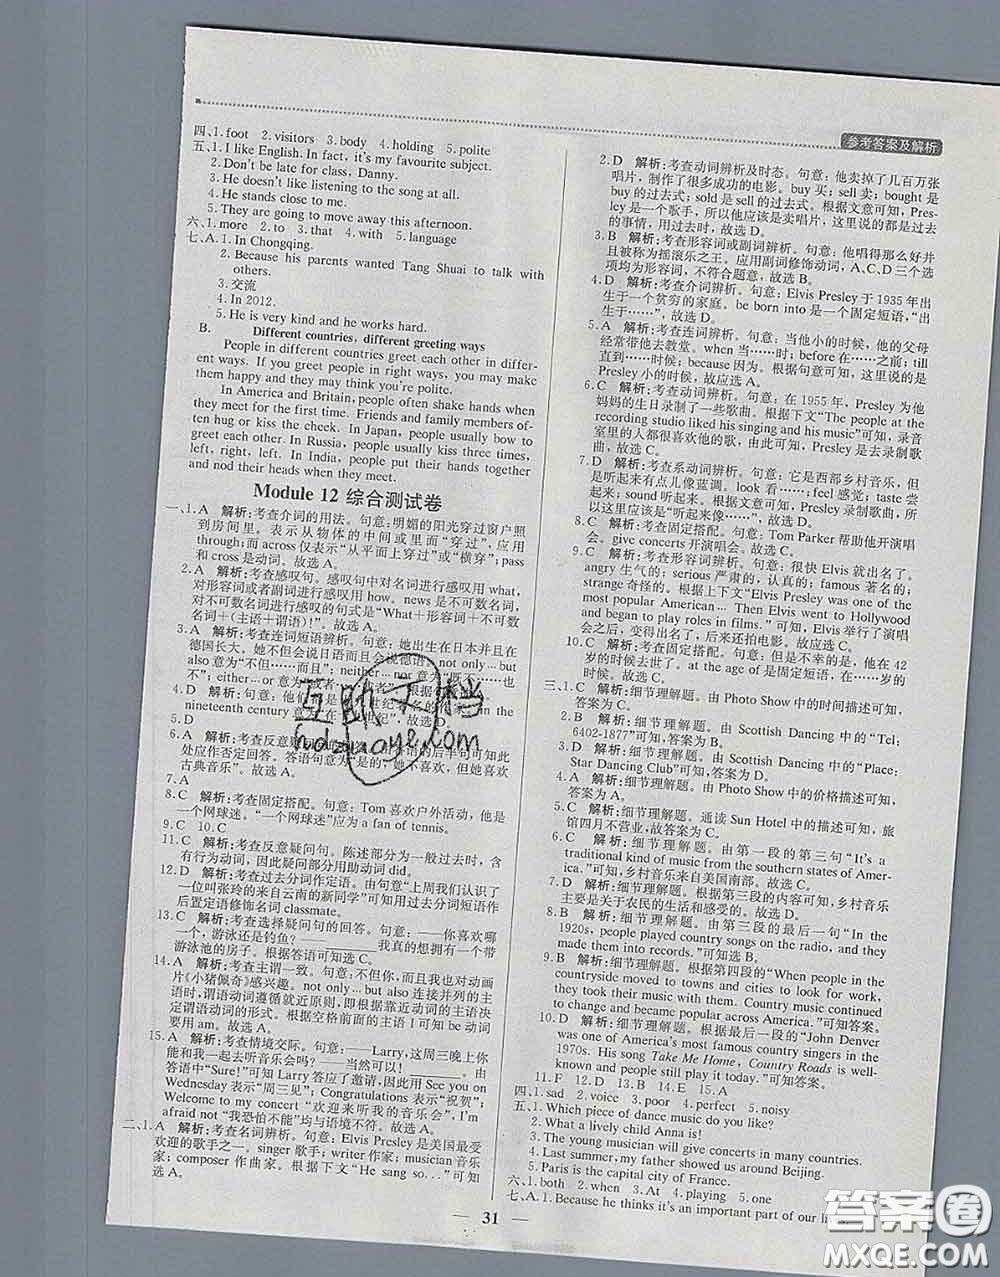 参考答案及解析
四、1. foot 2. visitors 3. body 4. holding 5. polite
五、1. I like English. In fact, it's my favourite subject.
2. Don't be late for class, Danny.
3. He doesn't like listening to the song at all.
4. He stands close to me.
5. They are going to move away this afternoon.
六、1. more 2. to 3. that 4. with 5. language
七、A. 1. In Chongqing.
2. Because his parents wanted Tang Shuai to talk with
others.
3. 交流
4. In 2012.
5. He is very kind and he works hard.
B. Different countries, different greeting ways
People in different countries greet each other in differ-
ent ways. If you greet people in right ways, you may make
them happy and they may think you're polite.
In America and Britain, people often shake hands when
they meet for the first time. Friends and family members of-
ten hug or kiss the cheek. In Japan, people usually bow to
greet each other. In Russia, people usually kiss three times,
left, right, left. In India, people put their hands together
and nod their heads when they meet.
Module 12 综合测试卷
一、1. A 解析:考查介词的用法。句意:明媚的阳光穿过窗户照
到房间里。表示从物体的中间或里面“穿过”,应用
through;而 across 仅表示“从平面上穿过”或“横穿”;pass
和 cross 是动词。故选 A。
2. A 解析:考查感叹句。感叹句中对名词进行感叹用 what,
对形容词或者副词进行感叹用 how。news 是不可数名词,
对不可数名词感叹的句式是“What+形容词+不可数
名词+(主语+谓语)!”。故选 A。
3. A 解析:考查连词短语辨析。句意:她出生在日本并且在
德国长大。她不但会说日语而且会说德语。not only … but
also 意为“不但……而且”;neither … nor 意
不”;either … or 意为
4. D 解析:考查
nineteenth century 意
5. D
6. A 解析:考查反意疑
处应作否定回答。答语句意为“是的,她不喜欢,但她喜欢
古典音乐”。故选 A。
7. A
8. C 解析:考查固定搭配。句意:Tom 喜欢户外活动,他是
一个网球迷。“一个网球迷”应为 a fan of tennis。
9. C 10. C
11. C 解析:考查反意疑问句。陈述部分为一般过去时,含
有行为动词,因此疑问部分用助动词 did。
12. D 解析:考查过去分词作定语。由句意“上周我们认识了
一位叫张玲的来自云南的新同学”可知用过去分词短语作
后置定语修饰名词 classmate。
13. C 解析:考查选择疑问句的回答。句意:——你喜欢哪
一个,游泳还是钓鱼?——______ 我真的想拥有一个带
游泳池的房子。根据答语可知选 C。
14. A 解析:考查主谓一致。句意:不但你,而且我也对动画
片《小猪佩奇》感兴趣。not only … but also 连接并列的主
语时,谓语动词遵循就近原则,即根据靠近动词的主语决定
谓语动词的形式。根据空格前面的主语 I 可知 be 动词
要用 am。故选 A。
15. A 解析:考查情境交际。句意:——Larry,这周三晚上你
能和我们一起去听音乐会吗?——当然可以!______ 由
答语中“Sure!”可知 Larry 答应了邀请,因此用 See you on
Wednesday 表示“周三见”;Congratulations 表示“祝贺”;
Welcome to my concert “欢迎来听我的音乐会”,I'm
afraid not “我恐怕不能”均与语境不符。故选 A。
二、1. A 解析:考查名词辨析。句意:Elvis Presley 是美国最受
欢迎的歌手之一。singer 歌手;writer 作家;musician 音乐
家;composer 作曲家。根据下文“He sang so…”可知
选 A。
2. D 解析:考查动词辨析及时态。句意:他卖掉了几百万张
唱片,制作了很多成功的电影。buy 买;sell 卖;bought 是
buy 的过去式;sold 是 sell 的过去式。根据文意可知,Pres-
ley 是一个歌手,所以他应该是卖唱片,这里说的都是过去
的事情,用过去时,故选 D。
3. B 解析:考查形容词或副词辨析。句意:他唱得那么好并
且被称为摇滚乐之王。应用副词修饰动词,A、C、D 三个选
项均为形容词,不符合题意,故选 B。
4. D 解析:考查介词辨析。句意:Elvis Presley 于 1935 年出
生于一个贫穷的家庭。be born into 是一个固定短语,“出
生于……”,故选 D。
5. A 解析:考查连词辨析。句意:当他小的时候,他的父母
经常带他去教堂。when 当……时;before 在……之前;till
直到……时候;because 因为。根据句意可知,这里说的是
Presley 小的时候,故应选 A。
6. C 解析:考查动词辨析。句意:在 1955 年,Presley 为他
妈妈的生日录制了一些歌曲。根据下文“The people at the
recording studio liked his singing and his music”可知,录音
室里的人都很喜欢他的歌,由此可知,Presley 是去录制歌
曲,故选 C。
7. D 解析:考查系动词辨析。句意:它是西部乡村音乐,但
听起来有点儿像蓝调。look 看……;feel……;taste 尝
起来;sound 听起来。根据文意可知,Presley 录制歌曲,所
以这里应该是“听起来像……”,故选 D。
8. C 解析:考查固定搭配。句意:Tom Parker 帮助他开演唱
会。give concerts 开演唱会。故选 C。
9. C 解析:考查形容词辨析。句意:很快 Elvis 就出名了。
angry 生气的;serious 严肃的,认真的;famous 著名的;
strange 奇怪的。根据上下文“Elvis Presley was one of the
most popular American… Then Elvis went to Hollywood
and began to play roles in films.”可知,Elvis 举行了演唱
会之后,变得出名了,后来还拍电影。故选 C。
10. C 解析:考查固定搭配。句意:但是不幸的是,他在 42
岁的时候去世了。at the age of 是固定短语,“在……岁的
时候。故选 C。
三、1. C 解析:细节理解题。由 Photo Show 中的时间描述可知,
选 C。
2. B 解析:细节理解题。由 Scottish Dancing 中的“Tel:
6402-1877”可知,答案为 B。
3. D 解析:细节理解题。由 Scottish Dancing 中的“Place:
Star Dancing Club”可知,答案为 D。
4. A 解析:细节理解题。由 Photo Show 中的价格描述可知,
答案为 A。
5. C 解析:细节理解题。通读 Sun Hotel 中的描述可知,旅
馆四月不营业,故答案为 C。
6. C 解析:细节理解题。由第一段的第三句“It's a
traditional kind of music from the southern states of Amer-
ica.”可知,乡村音乐来自美国南部。故选 C。
7. D 解析:细节理解题。根据第三段的内容可知,乡村音乐
主要是关于农民的生活和感受的。故选 D。
8. B 解析:细节理解题。由第三段的最后一句“In the
1920s, people played country songs on the radio, and they
made them into records.”可知选 B。
9. B 解析:细节理解题。根据第四段的“When people in the
countryside moved to towns and cities to look for work,
they took their music with them. Country music continued
to change and became popular across America.”可知答案。
10. D 解析:细节理解题。根据最后一段的“John Denver
was one of America's most famous country singers in the
1970s. His song Take Me Home, Country Roads is well-
known and people still play it today.”可知答案。
11. F 12. D 13. B 14. E 15. A
四、1. sad 2. voice 3. poor 4. perfect 5. noisy
五、1. Which piece of dance music do you like?
2. What a lively child Anna is!
3. The young musician will give concerts in many countries.
4. Last summer, my father showed us around Beijing.
5. Paris is the capital city of France.
六、1. both 2. when 3. At 4. playing 5. one
七、A. 1. Because he thinks it's an important part of our
31
互助文档
hdzuoye.com
答案圈
MXQE.COM